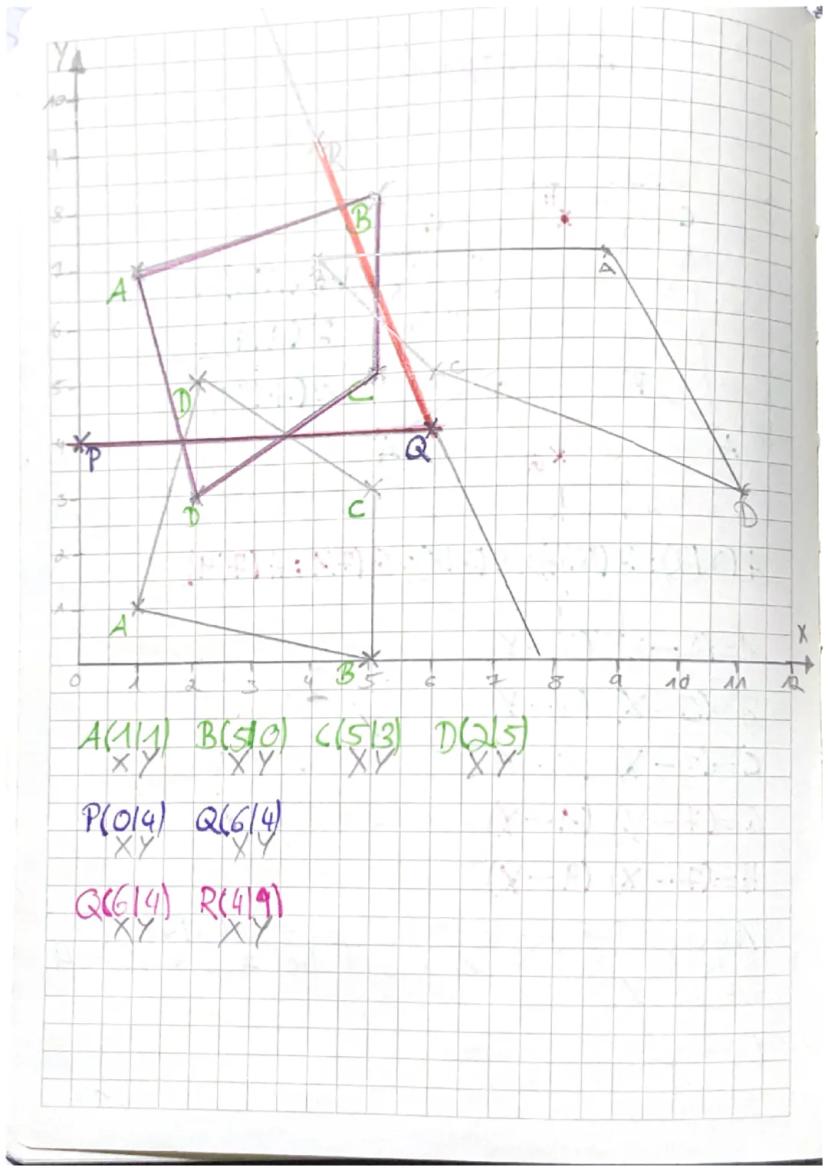 Y
10
9
R
8
B
7
A
A
6
5
D
C
C
4
P
Q
3
D
C
D
2
1
A
X
B
0 1 2 3 4 5 6 7 8 9 10 11 12
A(1|1) B(5|0) C(5|3) D(2|5)
X Y X Y X Y X Y
P(0|4) Q(6|4)
X Y X Y
Q(6|4) R(4|9)
X Y X Y